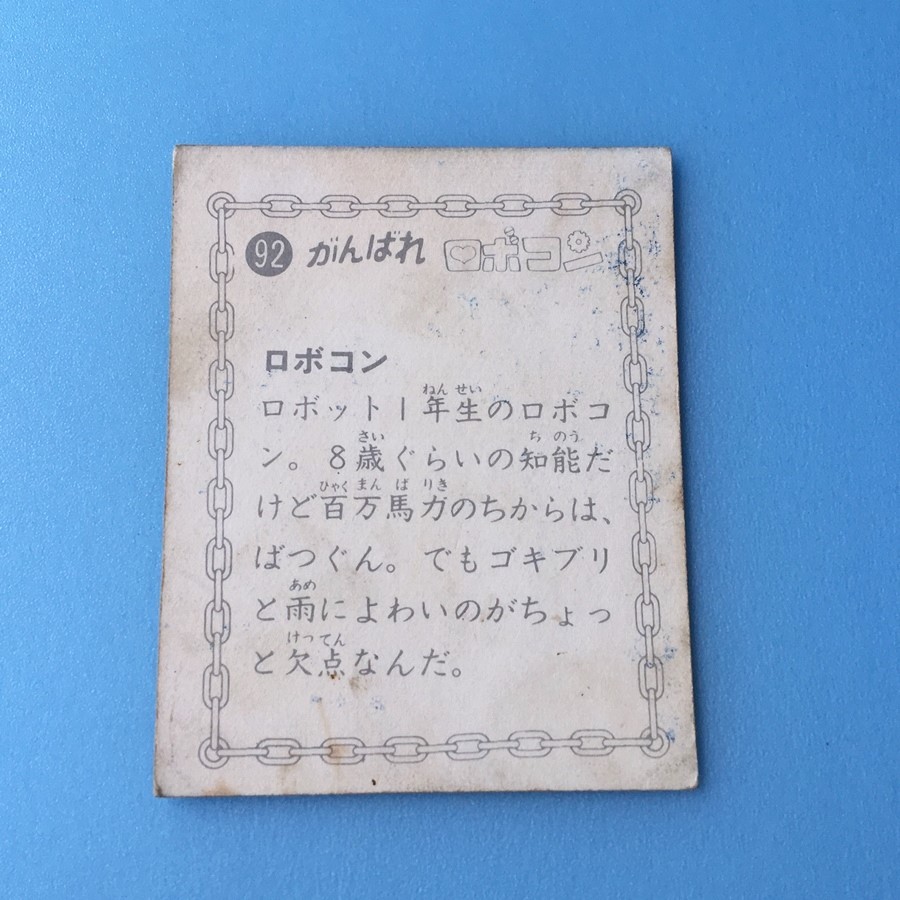 92 がんばれ ロボコン
ロボコン
ロボット1年生のロボコ
ン。8歳ぐらいの知能だ
けど百万馬力のちからは、
ばつぐん。でもゴキブリ
と雨によわいのがちょっ
と欠点なんだ。